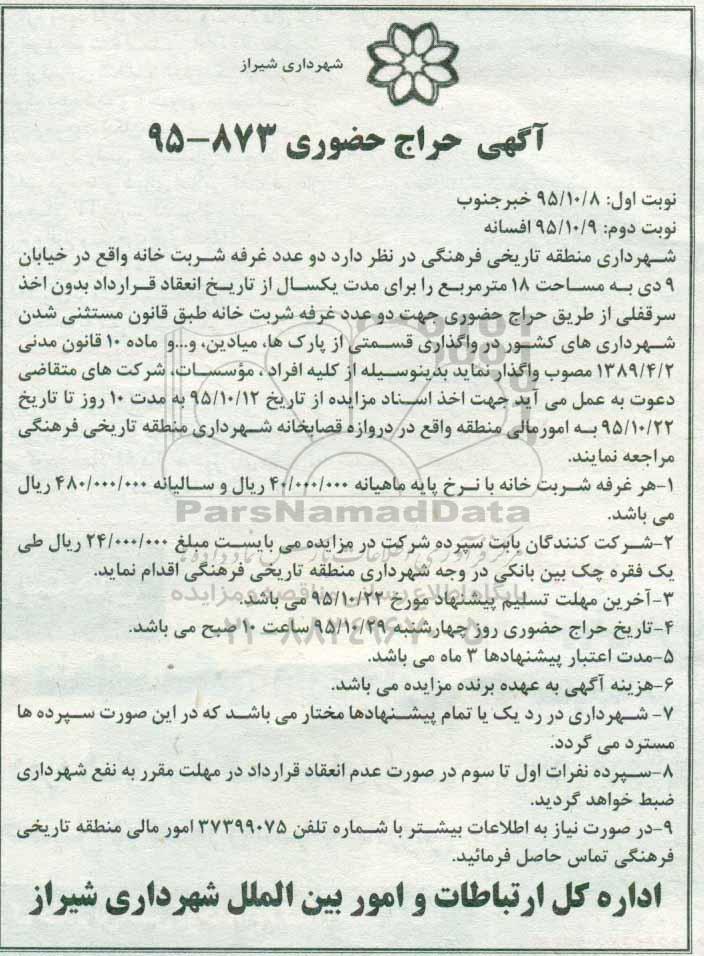 شهرداری شیراز
آگهی حراج حضوری ۸۷۳-۹۵
نوبت اول: ۹۵/۱۰/۸ خبرجنوب
نوبت دوم: ۹۵/۱۰/۹ افسانه
شهرداری منطقه تاریخی فرهنگی در نظر دارد دو عدد غرفه شربت خانه واقع در خیابان
۹ دی به مساحت ۱۸ مترمربع را برای مدت یکسال از تاریخ انعقاد قرارداد بدون اخذ
سرقفلی از طریق حراج حضوری جهت دو عدد غرفه شربت خانه طبق قانون مستثنی شدن
شهرداری های کشور در واگذاری قسمتی از پارک ها، میادین، و...و ماده ۱۰ قانون مدنی
۱۳۸۹/۴/۲ مصوب واگذار نماید بدینوسیله از کلیه افراد ، مؤسسات، شرکت های متقاضی
دعوت به عمل می آید جهت اخذ اسناد مزایده از تاریخ ۹۵/۱۰/۱۲ به مدت ۱۰ روز تا تاریخ
۹۵/۱۰/۲۲ به امورمالی منطقه واقع در دروازه قصابخانه شهرداری منطقه تاریخی فرهنگی
مراجعه نمایند.
۱-هر غرفه شربت خانه با نرخ پایه ماهیانه ۴۰/۰۰۰/۰۰۰ ریال و سالیانه ۴۸۰/۰۰۰/۰۰۰ ریال
می باشد.
ParsNamadData
۲-شرکت کنندگان بابت سپرده شرکت در مزایده می بایست مبلغ ۲۴/۰۰۰/۰۰۰ ریال طی
یک فقره چک بین بانکی در وجه شهرداری منطقه تاریخی فرهنگی اقدام نماید.
پایگاه اطلاع رسانی مناقصه و مزایده
۳-آخرین مهلت تسلیم پیشنهاد مورخ ۹۵/۱۰/۲۲ می باشد.
۴-تاریخ حراج حضوری روز چهارشنبه ۹۵/۱۰/۲۹ ساعت ۱۰ صبح می باشد.
۵-مدت اعتبار پیشنهادها ۳ ماه می باشد.
۶-هزینه آگهی به عهده برنده مزایده می باشد.
۷- شهرداری در رد یک یا تمام پیشنهادها مختار می باشد که در این صورت سپرده ها
مسترد می گردد.
۸-سپرده نفرات اول تا سوم در صورت عدم انعقاد قرارداد در مهلت مقرر به نفع شهرداری
ضبط خواهد گردید.
۹-در صورت نیاز به اطلاعات بیشتر با شماره تلفن ۳۷۳۹۹۰۷۵ امور مالی منطقه تاریخی
فرهنگی تماس حاصل فرمائید.
اداره کل ارتباطات و امور بین الملل شهرداری شیراز